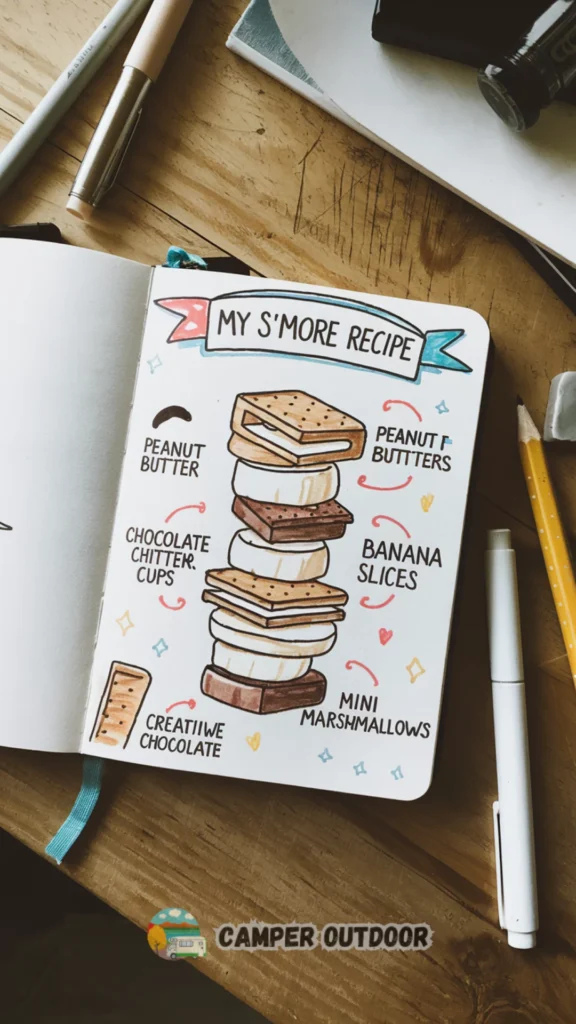 MY S'MORE RECIPE
PEANUT
BUTTER
PEANUT F
BUTTTERS
CHOCOLATE
CHITTER.
CUPS
BANANA
SLICES
CREATIIWE
CHOCOLATE
MINI
MARSHMALLOWS
CAMPER OUTDOOR